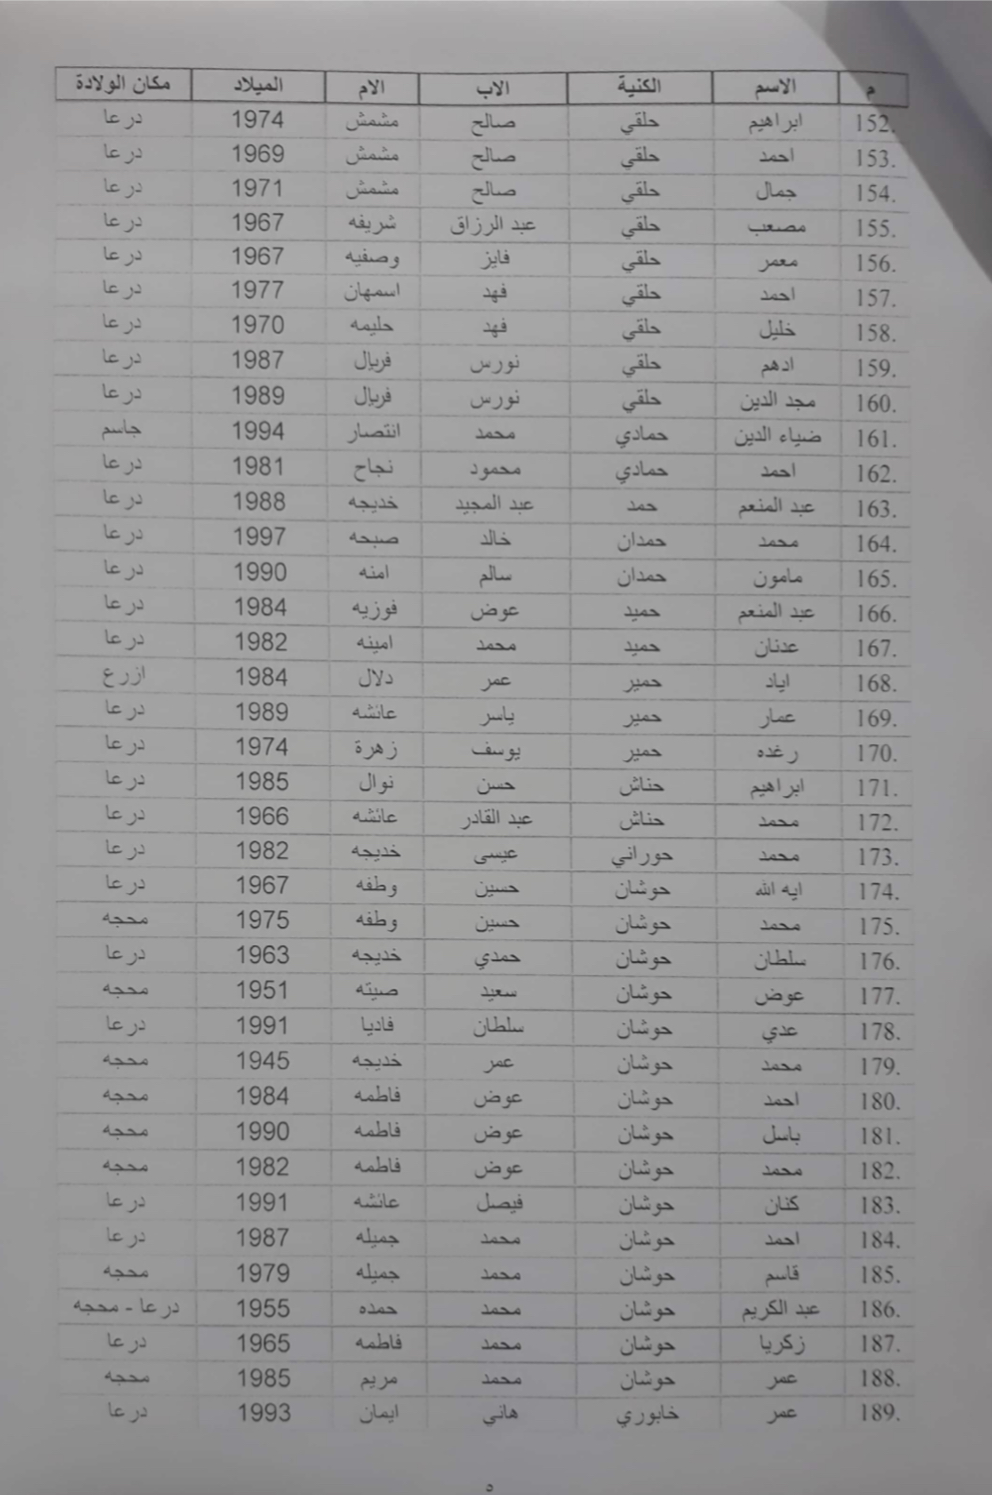 م الاسم الكنية الاب الام الميلاد مكان الولادة
152. ابراهيم حلقي صالح مشمش 1974 درعا
153. احمد حلقي صالح مشمش 1969 درعا
154. جمال حلقي صالح مشمش 1971 درعا
155. مصعب حلقي عبد الرزاق شريفه 1967 درعا
156. معمر حلقي فايز وصفيه 1967 درعا
157. احمد حلقي فهد اسمهان 1977 درعا
158. خليل حلقي فهد حليمه 1970 درعا
159. ادهم حلقي نورس فريال 1987 درعا
160. مجد الدين حلقي نورس فريال 1989 درعا
161. ضياء الدين حمادي محمد انتصار 1994 جاسم
162. احمد حمادي محمود نجاح 1981 درعا
163. عبد المنعم حمد عبد المجيد خديجه 1988 درعا
164. محمد حمدان خالد صبحه 1997 درعا
165. مامون حمدان سالم امنه 1990 درعا
166. عبد المنعم حميد عوض فوزيه 1984 درعا
167. عدنان حميد محمد امينه 1982 درعا
168. اياد حمير عمر دلال 1984 ازرع
169. عمار حمير ياسر عائشه 1989 درعا
170. رغده حمير يوسف زهرة 1974 درعا
171. ابراهيم حناش حسن نوال 1985 درعا
172. محمد حناش عبد القادر عائشه 1966 درعا
173. محمد حوراني عيسى خديجه 1982 درعا
174. ايه الله حوشان حسين وطفه 1967 درعا
175. محمد حوشان حسين وطفه 1975 محجه
176. سلطان حوشان حمدي خديجه 1963 درعا
177. عوض حوشان سعيد صيته 1951 محجه
178. عدي حوشان سلطان فاديا 1991 درعا
179. محمد حوشان عمر خديجه 1945 محجه
180. احمد حوشان عوض فاطمه 1984 محجه
181. باسل حوشان عوض فاطمه 1990 محجه
182. محمد حوشان عوض فاطمه 1982 محجه
183. كنان حوشان فيصل عائشه 1991 درعا
184. احمد حوشان محمد جميله 1987 درعا
185. قاسم حوشان محمد جميله 1979 محجه
186. عبد الكريم حوشان محمد حمده 1955 درعا - محجه
187. زكريا حوشان محمد فاطمه 1965 درعا
188. عمر حوشان محمد مريم 1985 محجه
189. عمر خابوري هاني ايمان 1993 درعا
٥